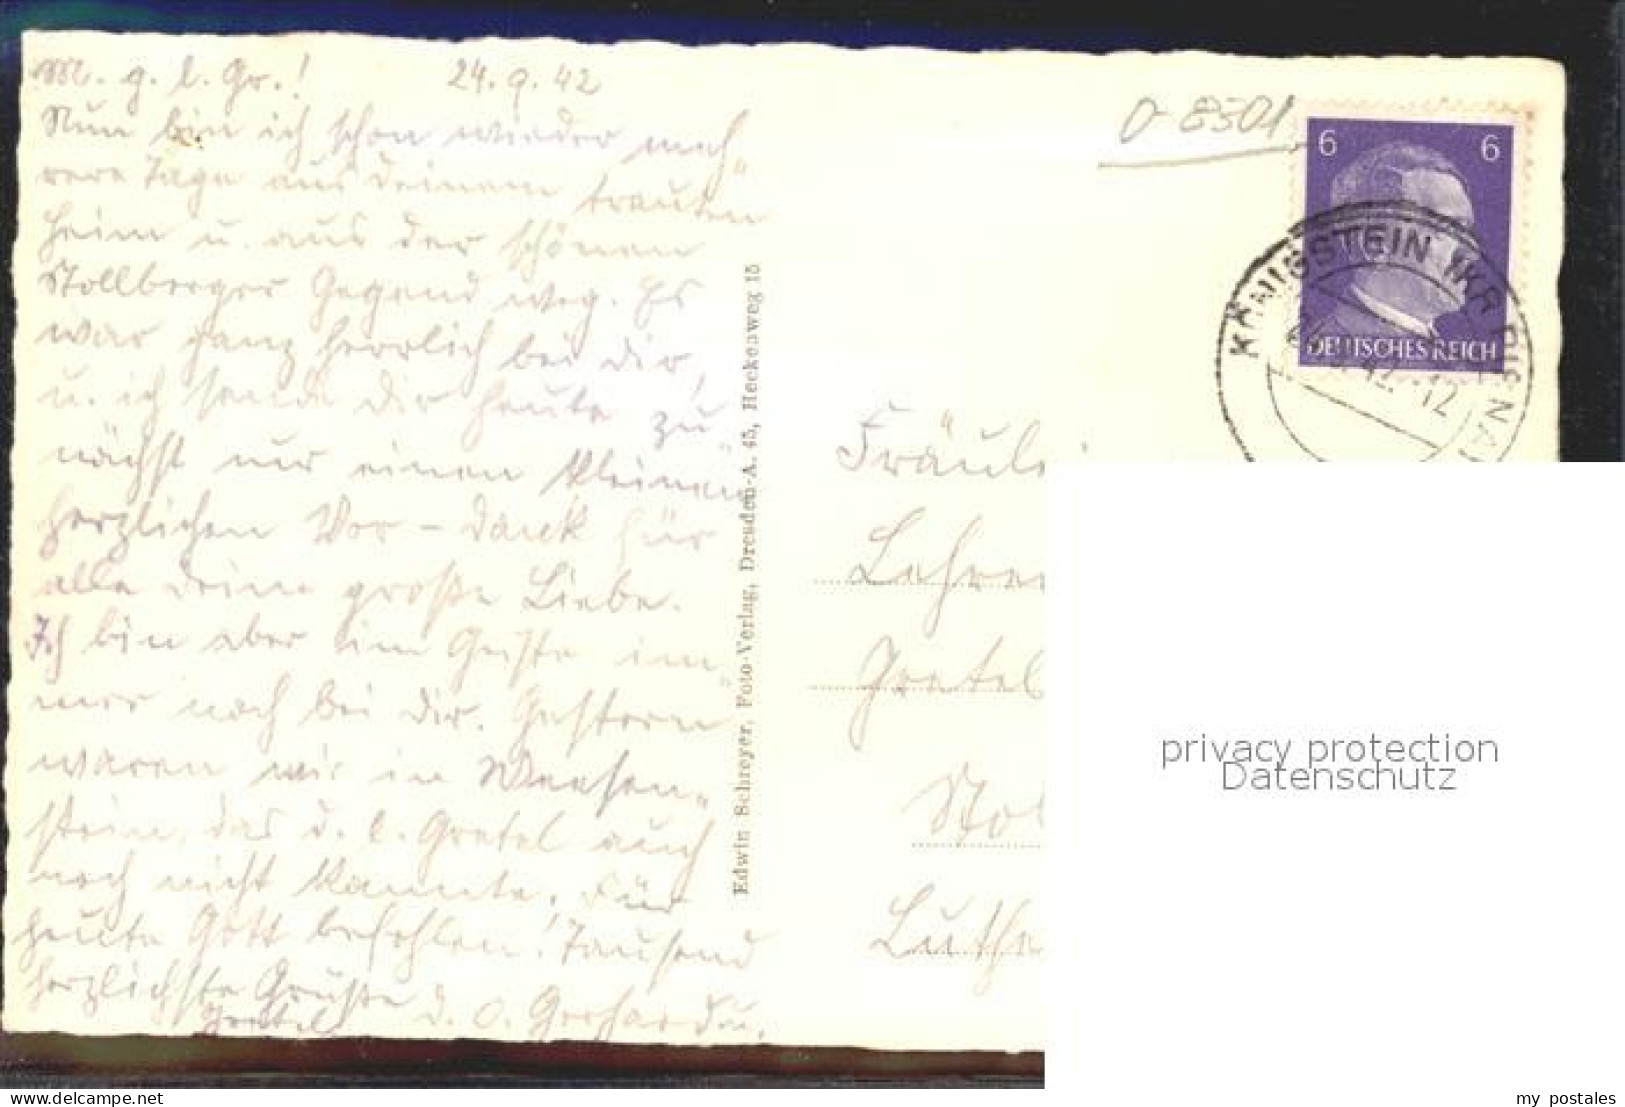 M. g. l. Gr.! 24.9.42
Nun bin ich schon wieder meh"
rere Tage aus deinem trauten
Heim u. aus der schönen
Stollberger Gegend weg. Es
war ganz herrlich bei dir,
u. ich sende dir heute zu"
nächst nur einen kleinen
herzlichen Vor-dank für
alle deine große Liebe.
Ich bin aber im Geiste im"
mer noch bei dir. Gestern
waren wir in Weesen"
stein, das d. l. Gretel auch
noch nicht kannte. Für
heute Gott befohlen! Tausend
herzlichste Grüße d. O. Gerhard u.
Gretel
Edwin Schreyer, Foto-Verlag, Dresden-A. 45, Heckenweg 15
0-8301
6 6
DEUTSCHES REICH
KÖNIGSTEIN (KR PIRNA
.42.-12
Fräule
Lehrer
Gretel
Stol
Luthe
privacy protection
Datenschutz
www.delcampe.net
my_postales